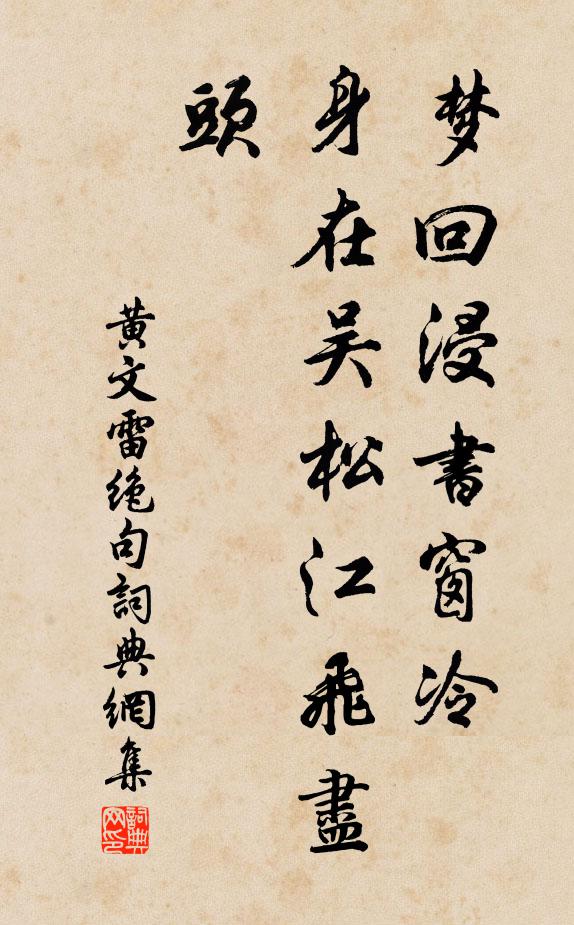 梦回浸書窗冷
身在吴松江飛盡
頭
黄文雷絶句詞典網集
詞典网印